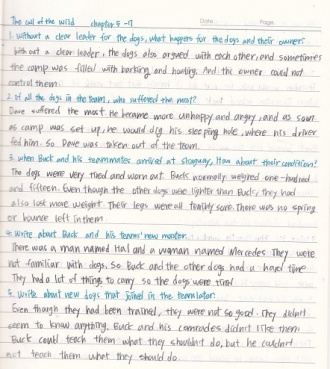 The call of the wild chapter 5 -7 Date Page
1. Without a clear leader for the dogs, what happens for the dogs and their owners
Without a clear leader, the dogs also argued with each other, and sometimes
the camp was filled with barking and howling. And the owner could not
control them.
2. Of all the dogs in the team, who suffered the most?
Dave suffered the most. He became more unhappy and angry, and as soon
as camp was set up, he would dig his sleeping hole, where his driver
fed him. So Dave was taken out of the team.
3. When Buck and his teammates arrived at Skaguay, How about their condition?
The dogs were very tried and worn out. Buck's normally weighed one-hundred
and fifteen. Even though the other dogs were lighter than Buck, they had
also lost more weight. Their legs were all terribly sore. There was no spring
or bounce left in them.
4. Write about Buck and his teams' new master.
There was a man named Hal and a woman named Mercedes. They were
not familiar with dogs. So Buck and the other dogs had a hard time.
They had a lot of things to carry so the dogs were tired.
5. Write about new dogs that joined in the team later.
Even though they had been trained, they were not so good. They didn't
seem to know anything. Buck and his comrades didn't like them.
Buck could teach them what they shouldn't do, but he couldn't
teach them what they should do.